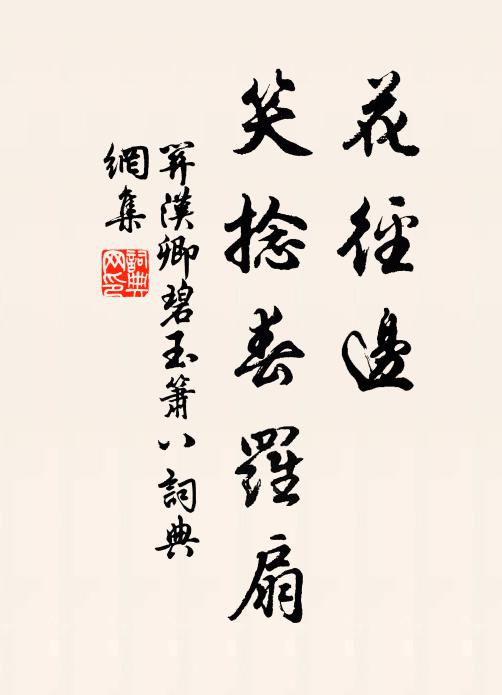 花徑邊
笑捻春羅扇
關漢卿碧玉簫八詞典
網集
詞典
网印